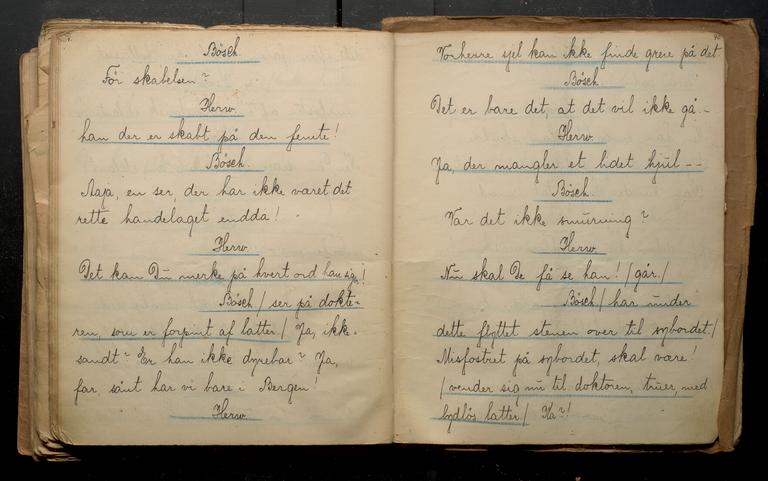 Bösch.
Før skabelsen?
Herw.
han der er skabt på den femte!
Bösch.
Aaja, en ser, der har ikke været det
rette handelaget endda!
Herw.
Det kan Du merke på hvert ord han sig.!
Bösch / ser på dokto-
ren, som er forpint af latter / Ja, ikke-
sandt? Er han ikke dyrebar? Ja,
far, sånt har vi bare i Bergen!
Herw.
Vorherre sjel kan ikke finde greie på det
Bösch
Det er bare det, at det vil ikke gå -
Herw.
Ja, der mangler et lidet hjul --
Bösch.
Var det ikke smurning?
Herw.
Nu skal De få se han! / går. /
Bösch / har under
dette flyttet stenen over til sybordet. /
Misfostret på sybordet, skal være!
/ vender sig nu til doktoren, truer, med
lydløs latter / Ka?!